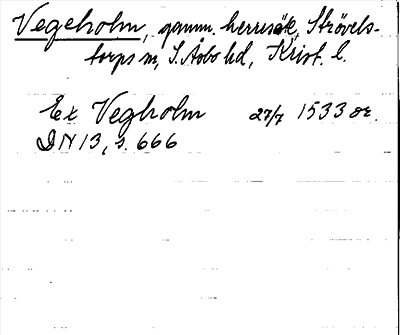 Vegeholm, gamm. herresäk, Strövels-
torps sn, S. Åsbo hd, Krist. l.
Ex Vegholm 27/7 1533 or.
DN 13, s. 666